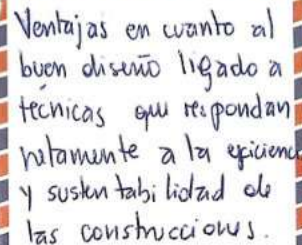 Ventajas en cuanto al
buen diseño ligado a
técnicas que respondan
netamente a la eficienc
y sustentabilidad de
las construcciones.